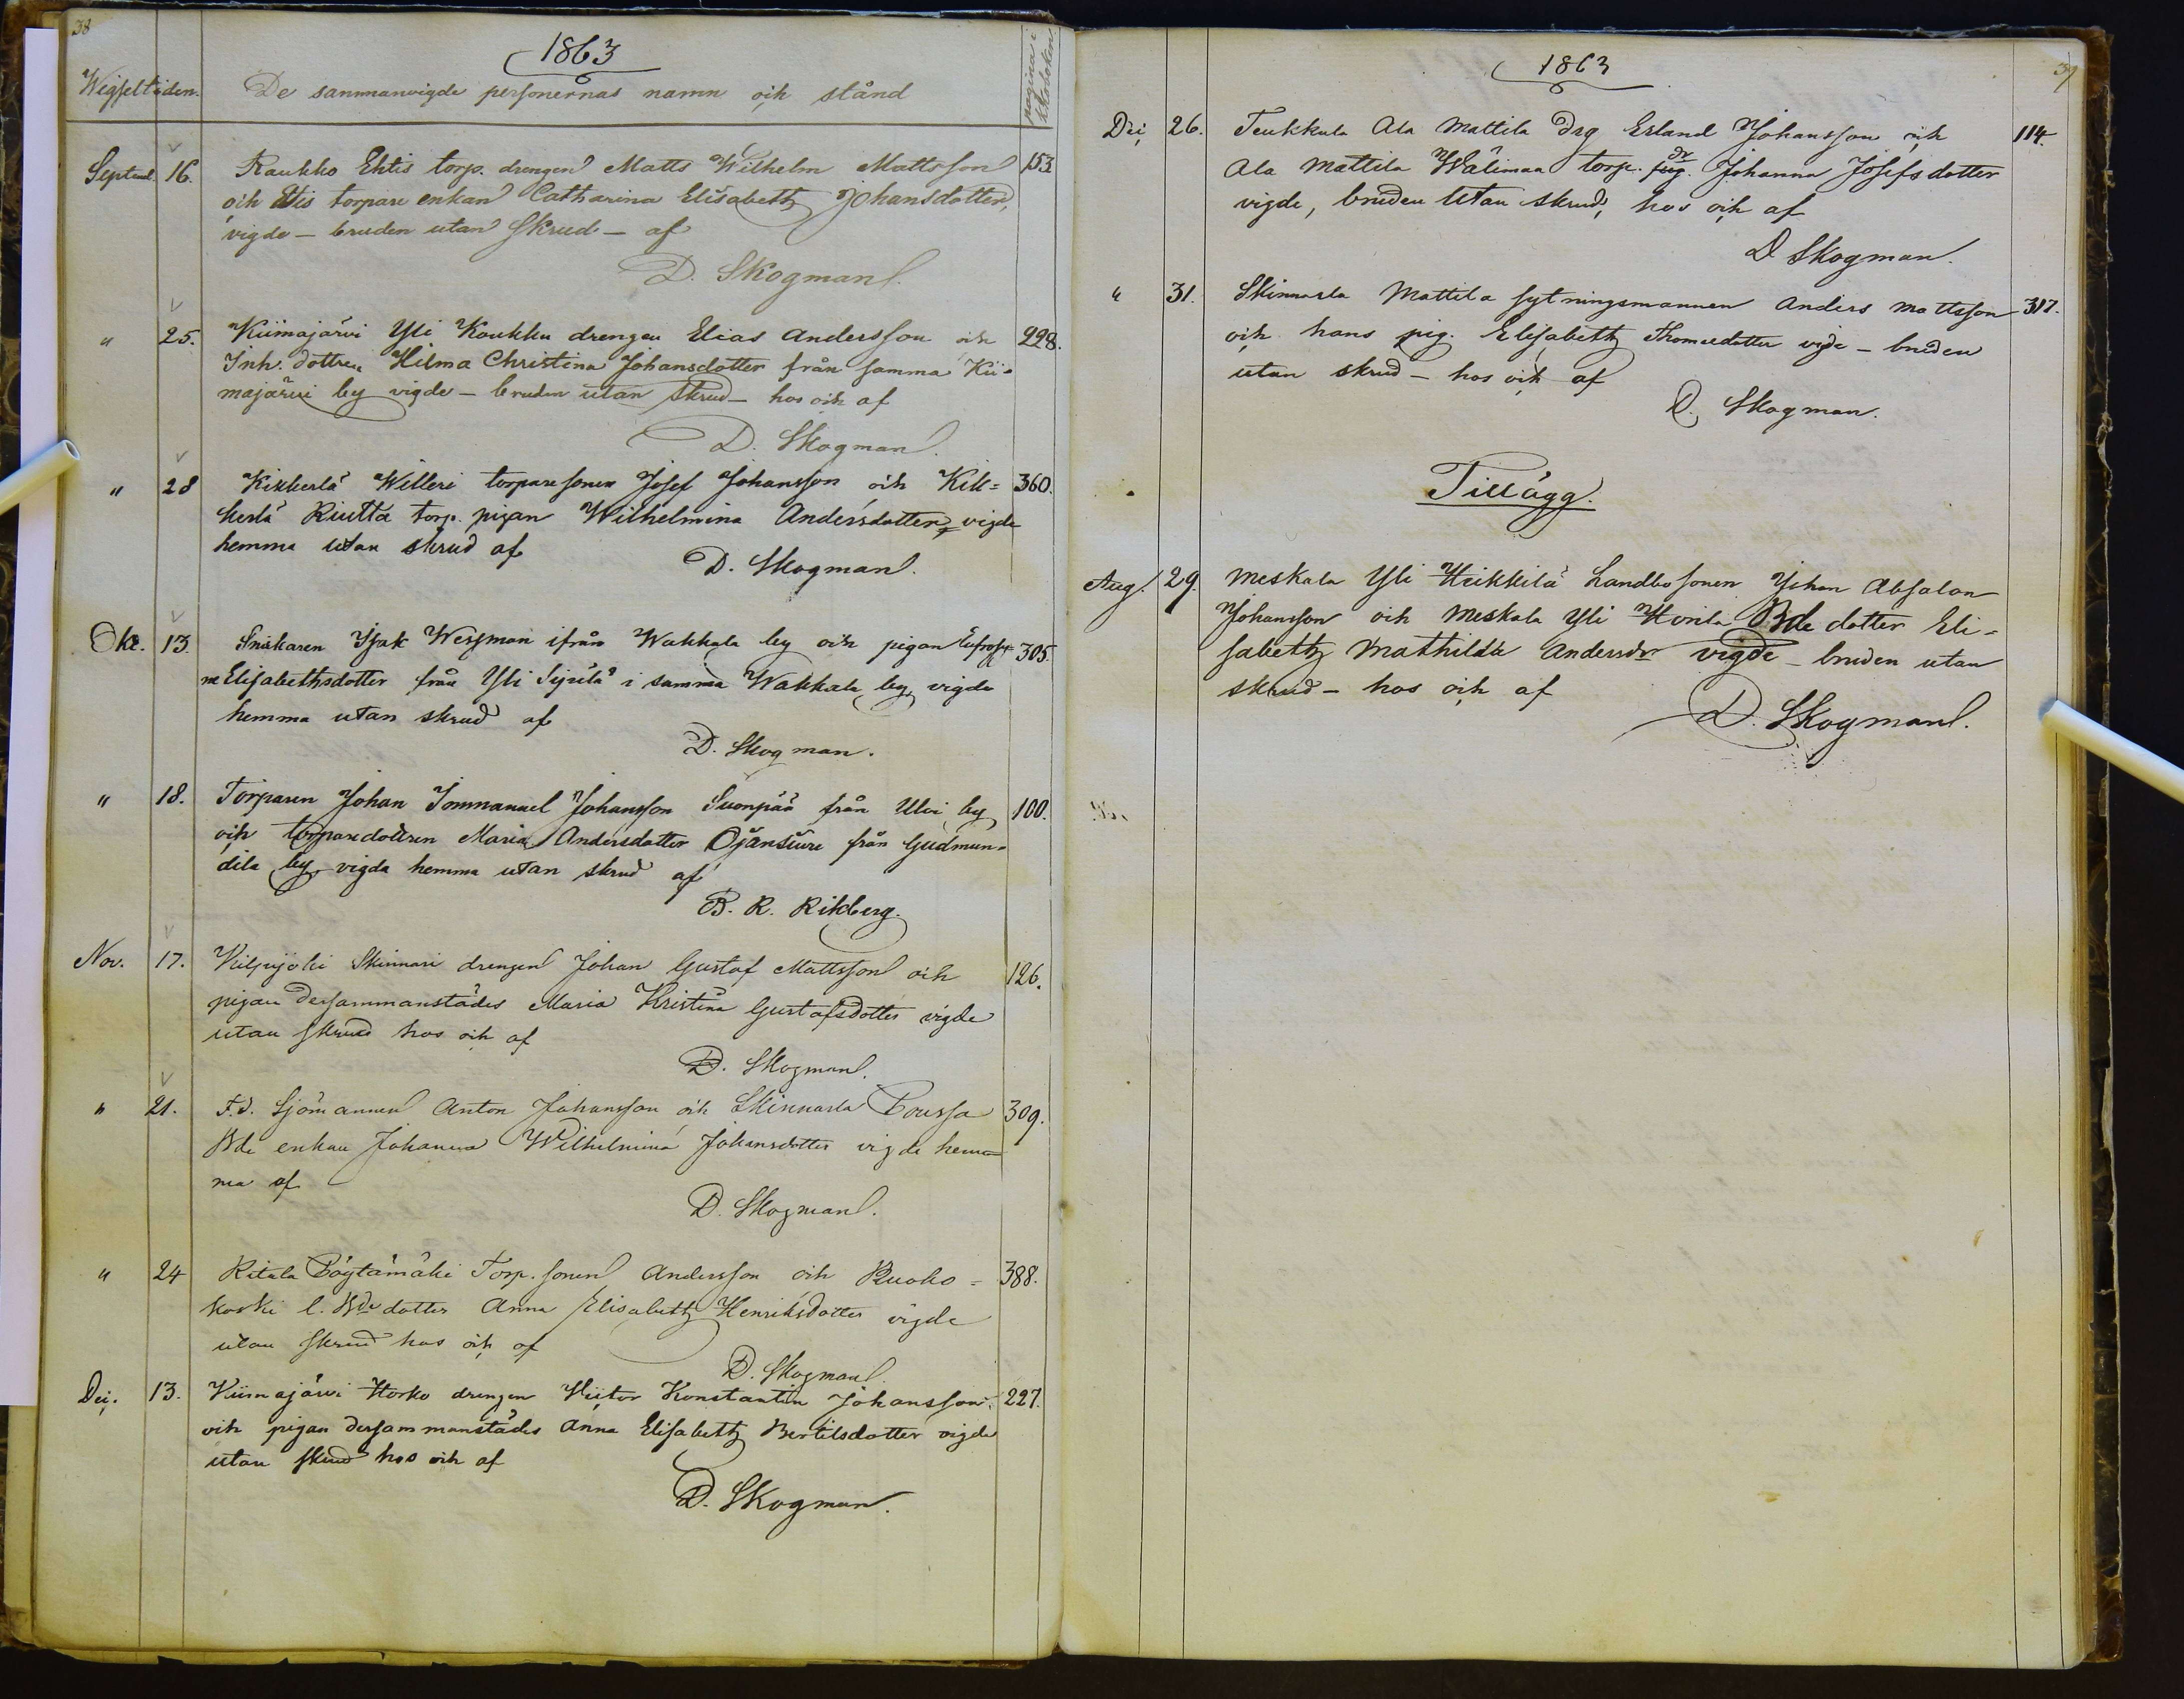 38
1863
Wigseltiden.
De sammanvigde personernas namn och stånd
pagina i kkoboken
Septemb. 16. Raukko Ehtis torp. drengen Matts Wilhelm Mattsson 153
och Ehtis torpare enkan Catharina Elisabeth Johansdotter,
vigde – bruden utan skrud – af
D. Skogman.
" 25. Kiimajärvi Yli Koukku drengen Elias Andersson och 228.
Inh. dottren Hilma Christina Johansdotter från samma Kii-
majärvi by vigde – bruden utan skrud – hos och af
D. Skogman.
" 28 Kikkerlä Willeri torparesonen Josef Johansson och Kik= 360.
kerlä Riutta torp. pigan Wilhelmina Andersdotter, vigde
hemma utan skrud af
D. Skogman.
Okt. 13. Snikaren Isak Wegman ifrån Wakkala by och pigan Eufrosy- 305.
ne Elisabethsdotter från Yli Sijrilä i samma Wakkala by, vigde
hemma utan skrud af
D. Skogman.
" 18. Torparen Johan Immanuel Johansson Suonpää från Ulvi by 100.
och torparedottren Maria Andersdotter Ojansuu från Gudmun-
dila by, vigda hemma utan skrud af
B. R. Rikberg.
Nov. 17. Kilpijoki Skinnari drengen Johan Gustaf Mattsson och 126.
pigan dersammanstädes Maria Kristina Gustafsdotter vigde
utan skrud hos och af
D. Skogman.
" 21. F.d. Sjömannen Anton Johansson och Skinnarla Poussa 309.
Bde enkan Johanna Wilhelmina Johansdotter vigde hem-
ma af
D. Skogman.
" 24 Ritala Pöytämäki Torp. sonen Andersson och Ruoko= 388.
koski l. Bde dotter Anna Elisabeth Henriksdotter vigde
utan skrud hos och af
D. Skogman.
Dec. 13. Kiimajärvi Horko drengen Victor Konstantin Johansson 227.
och pigan dersammanstädes Anna Elisabeth Bertilsdotter vigde
utan skrud hos och af
D. Skogman.
39
1863
Dec. 26. Teukkula Ala Mattila drg Erland Johansson och 114.
Ala Mattila Wälimaa torp. dr Johanna Josefsdotter
vigde, bruden utan skrud, hos och af
D Skogman.
" 31. Skinnarla Mattila sytningsmannen Anders Mattsson 317.
och hans pig. Elisabeth Thomasdotter vigde – bruden
utan skrud – hos och af
D. Skogman.
Tillägg.
Aug. 29. Meskala Yli Heikkilä Landbosonen Johan Absalon
Johansson och Meskala Yli Horila Bde dotter Eli-
sabeth Mathilda Andersdr vigde – bruden utan
skrud – hos och af
D. Skogman.